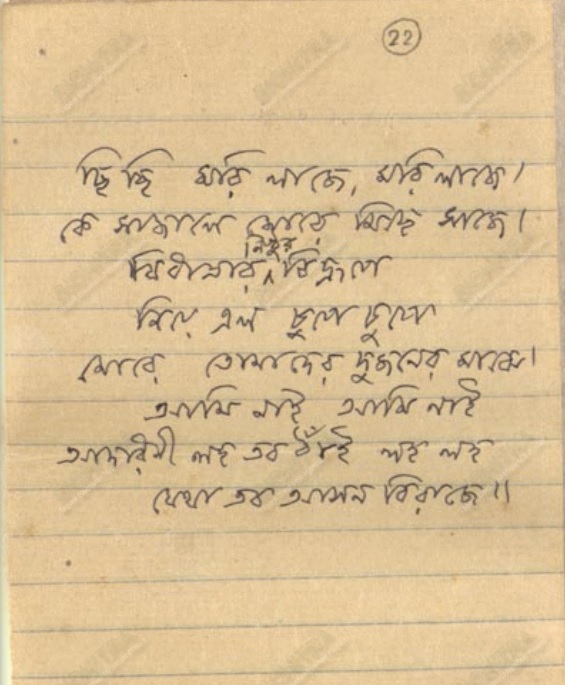 22
ছি ছি মরি লাজে, মরি লাজে।
কে সাজালে মোরে মিছে সাজে।
বিধাতার নিষ্ঠুর বিদ্রূপে
নিয়ে এল চুপে চুপে
মোরে তোমাদের দুজনের মাঝে।
আমি নাই, আমি নাই
আদরিণী লহ তব ঠাঁই লহ লহ
যেথা তব আসন বিরাজে॥